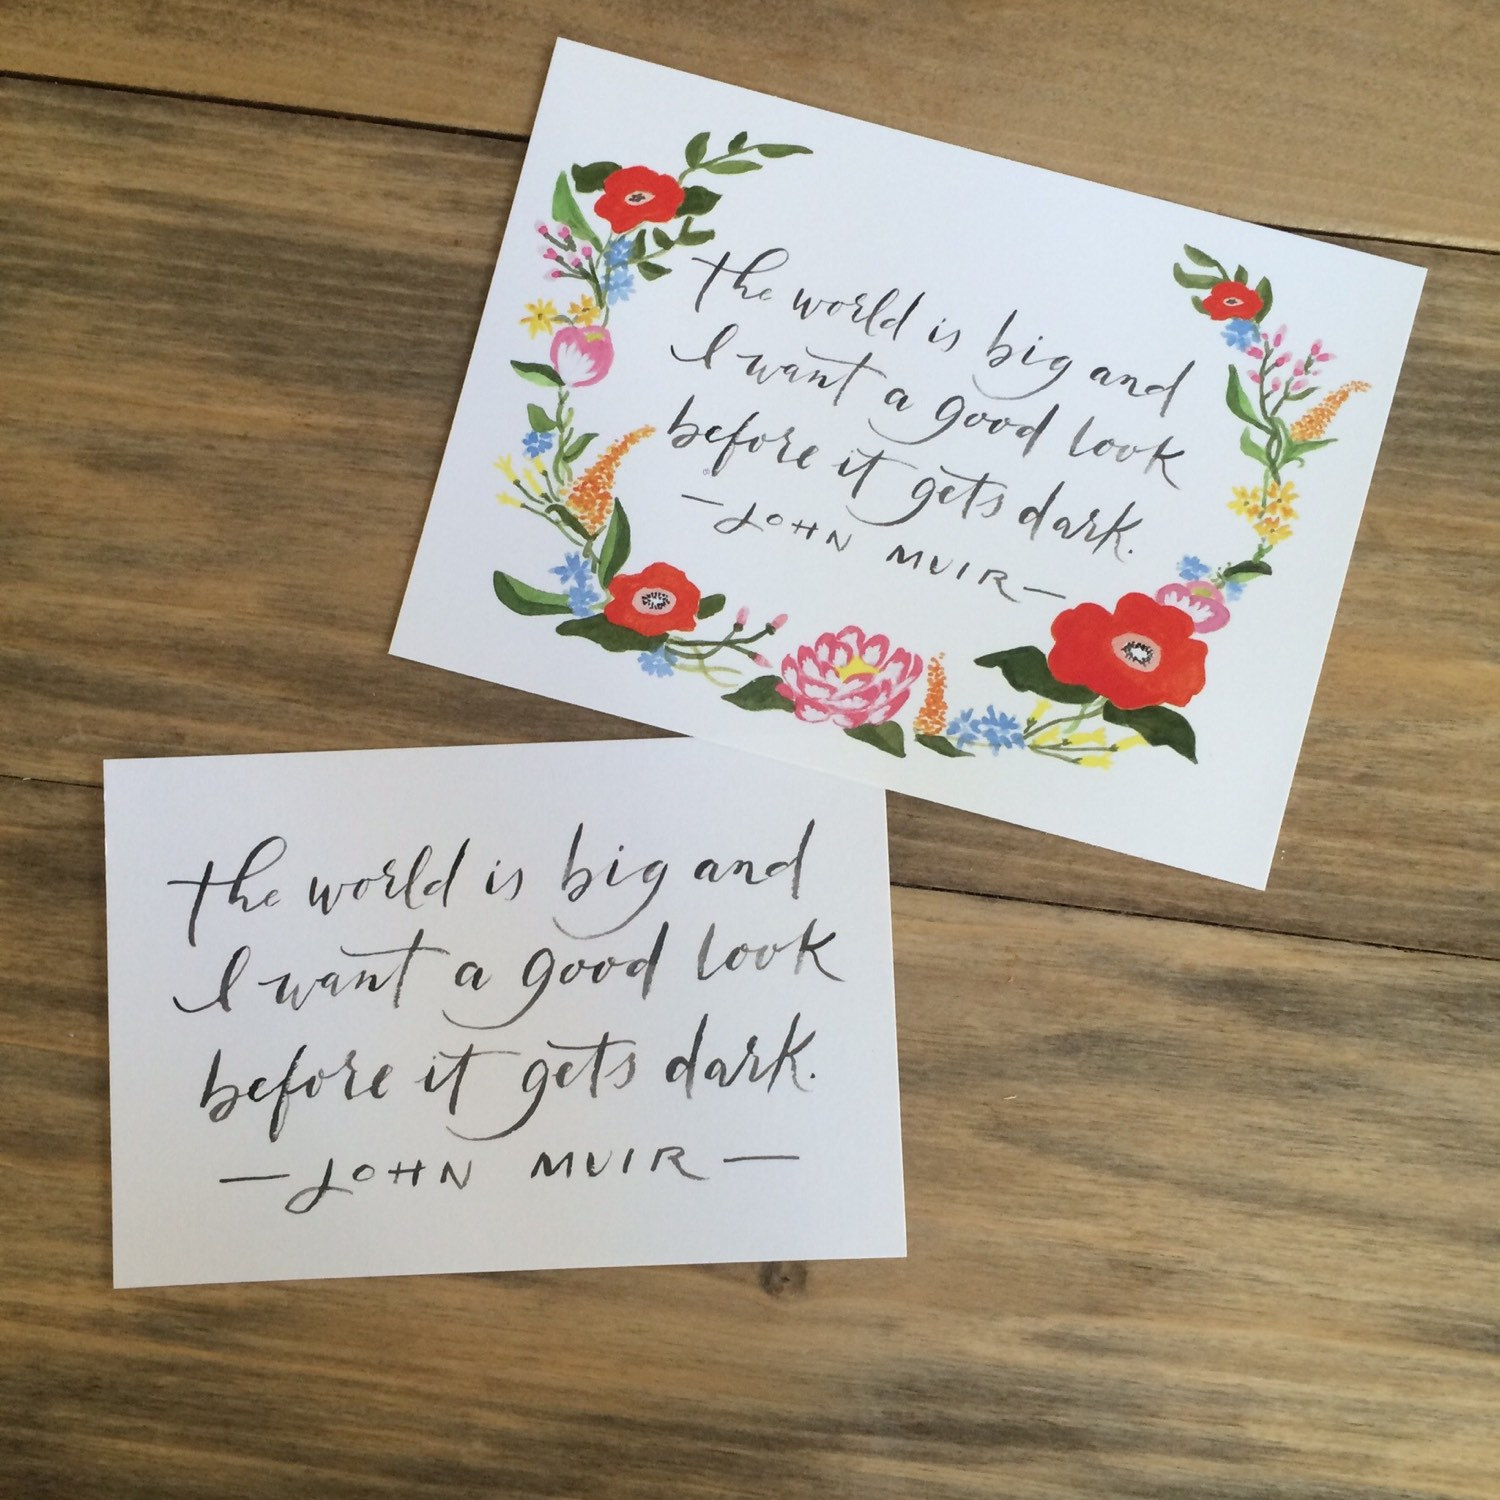 the world is big and
I want a good look
before it gets dark.
—JOHN MUIR—
the world is big and
I want a good look
before it gets dark.
—JOHN MUIR—